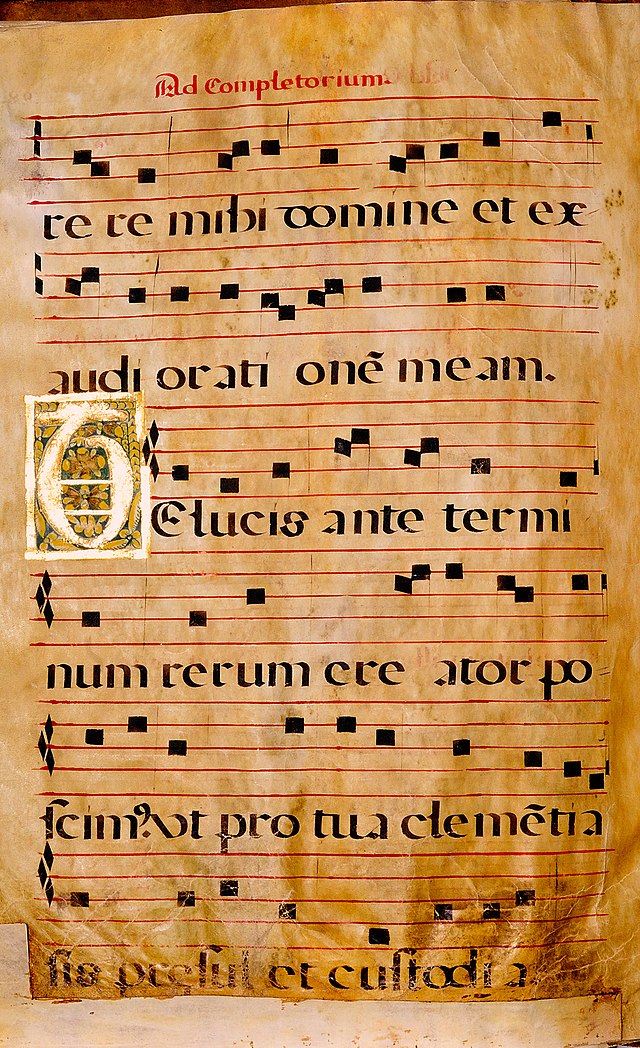 Ad Completorium.
re re mihi domine et ex
audi orati onẽ meam.
TE lucis ante termi
num rerum cre ator po
scimꝰ vt pro tua clemẽtia
sis presul et custodi a.